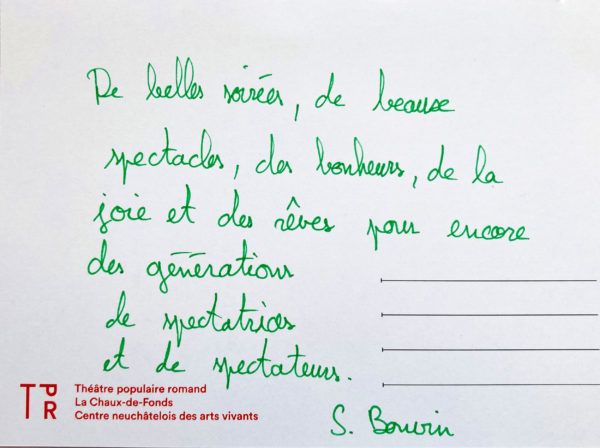 De belles soirées, de beaux
spectacles, des bonheurs, de la
joie et des rêves pour encore
des générations
de spectatrices
et de spectateurs.
TPR
Théâtre populaire romand
La Chaux-de-Fonds
Centre neuchâtelois des arts vivants
S. Bonvin